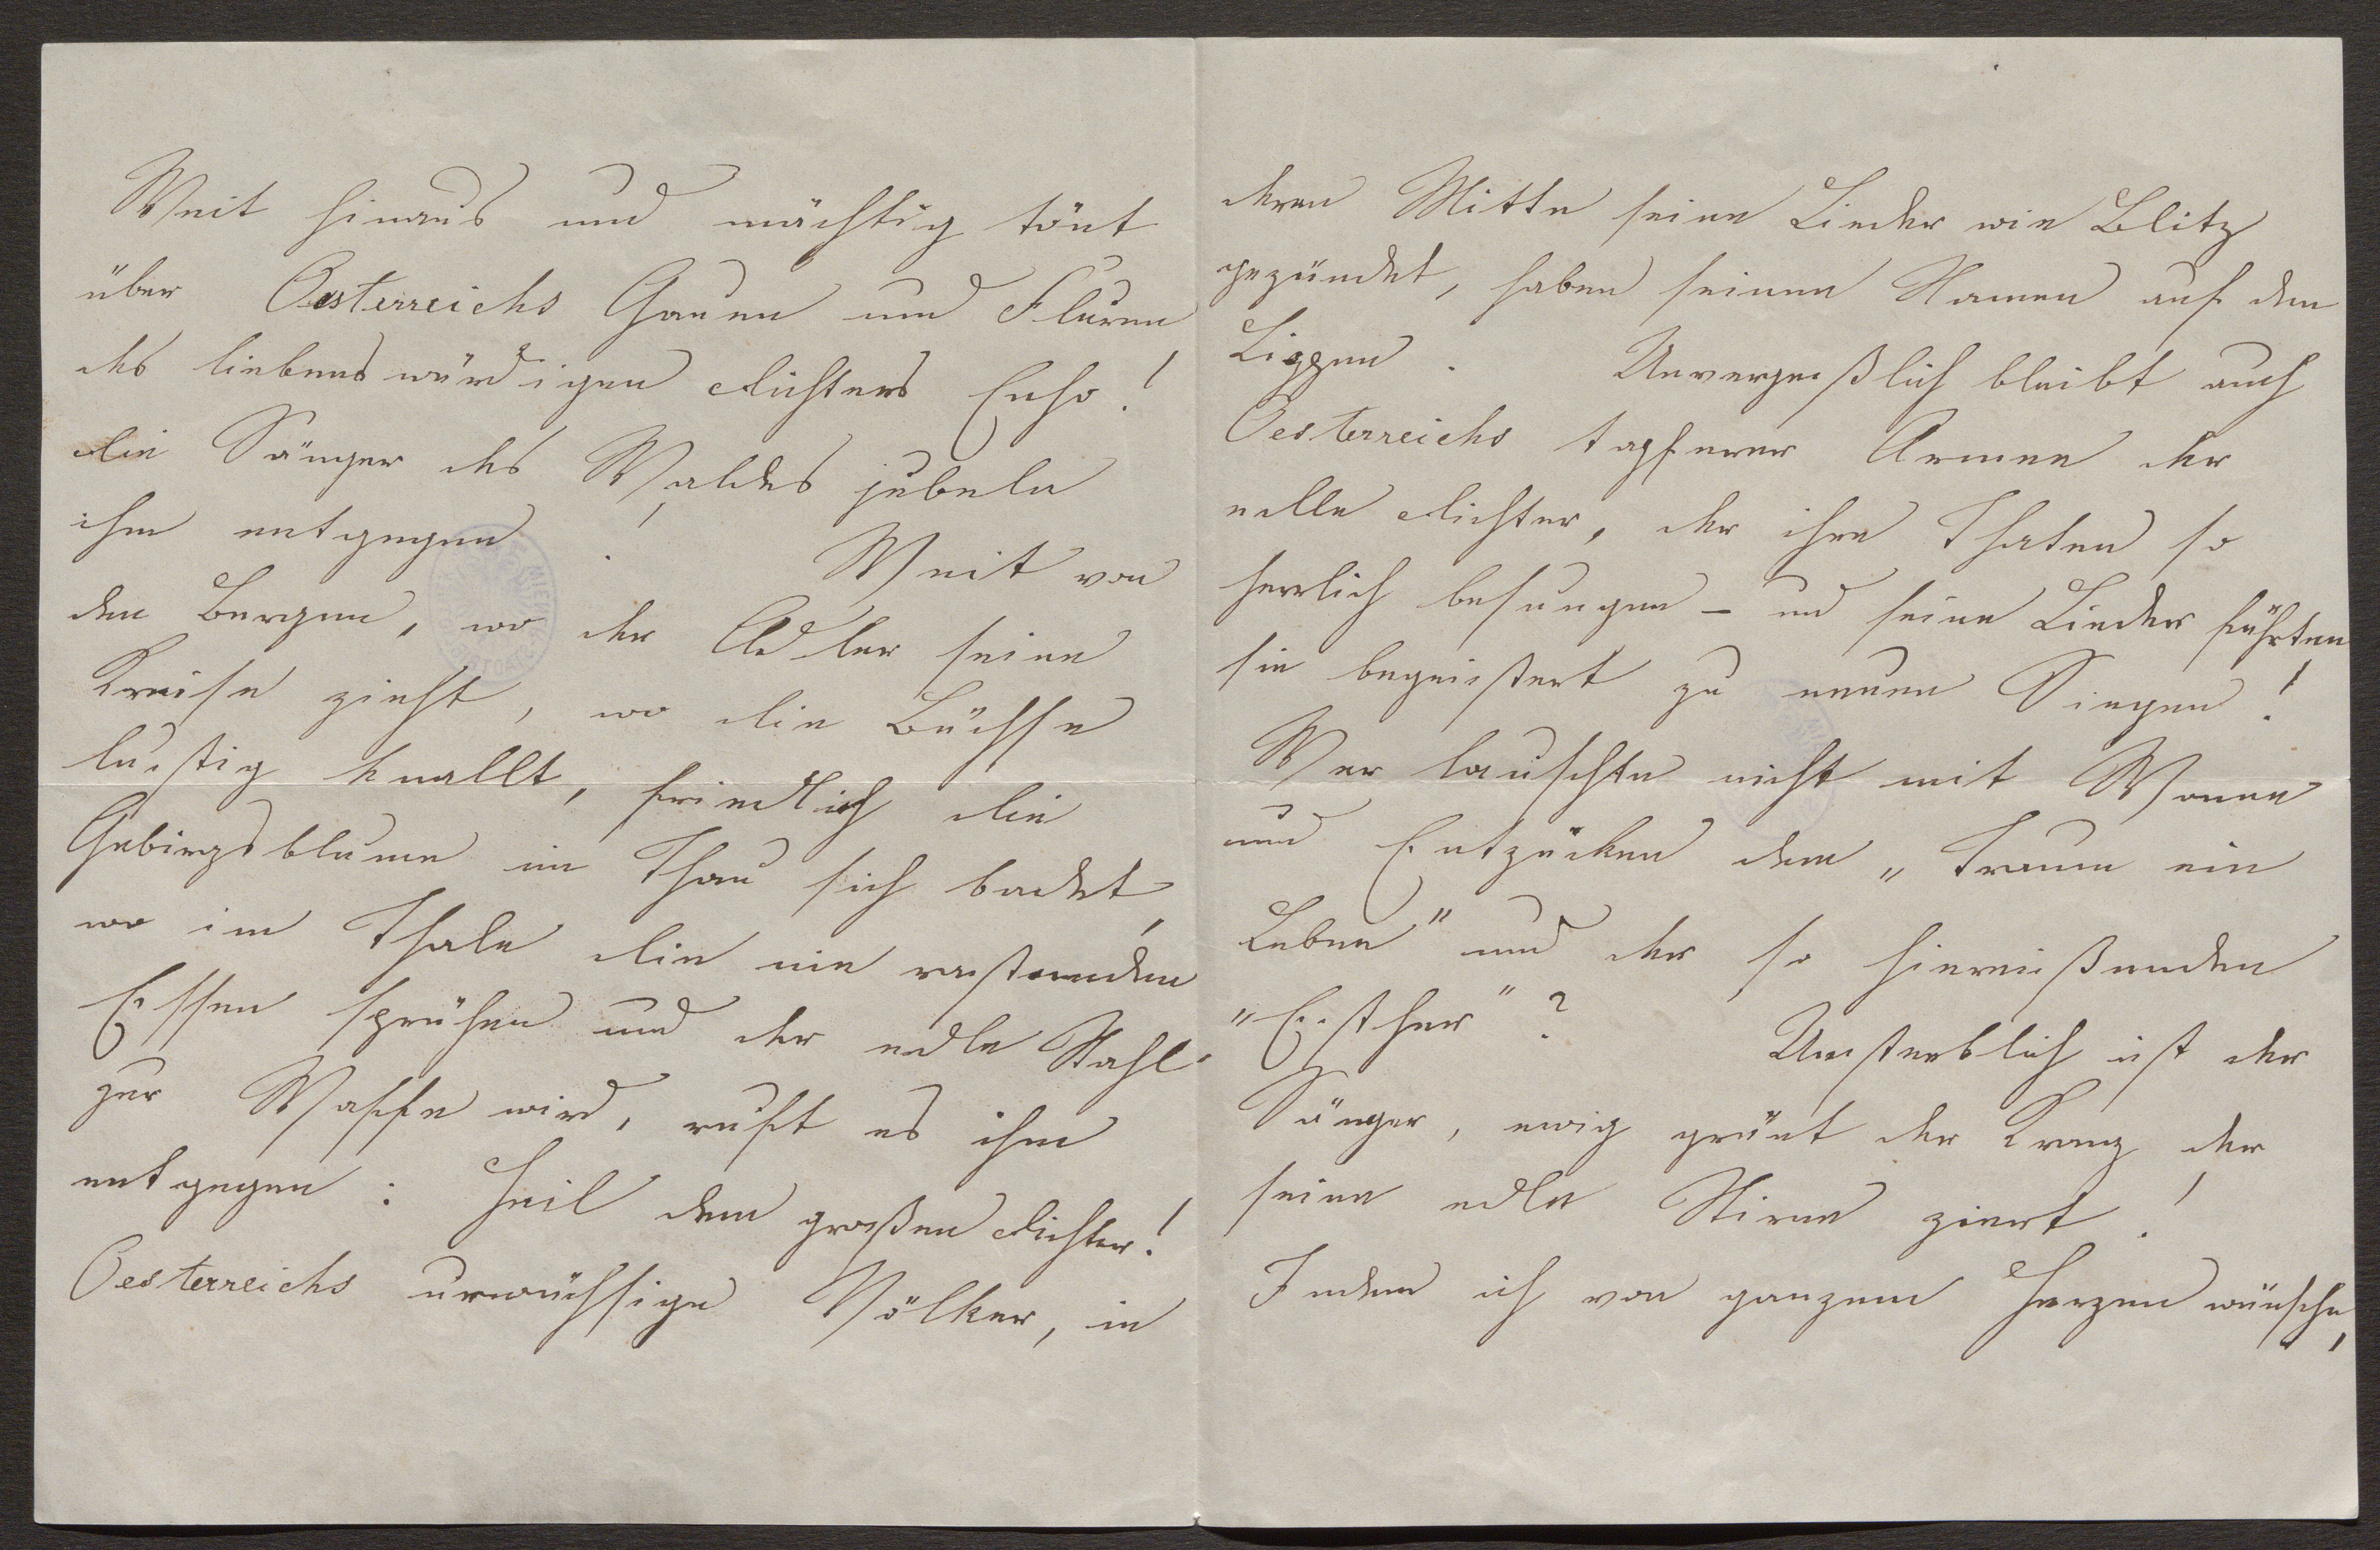 Weit hinaus und mächtig tönt
über Oesterreichs Gauen und Fluren
des liebenswürdigen Dichters Echo!
Die Sänger des Waldes jubeln
ihm entgegen! Weit von
den Bergen, wo der Adler seine
Kreise zieht, wo die Büchse
lustig knallt, friedlich die
Gebirgsblume im Thau sich badet,
wo im Thale die nie rastenden
Essen sprühen und der edle Stahl
zur Waffe wird, ruft es ihm
entgegen: Heil dem großen Dichter!
Oesterreichs urwüchsige Völker, in
deren Mitte seine Lieder wie Blitz
gezündet, haben seinen Namen auf den
Lippen. Unvergeßlich bleibt auch
Oesterreichs tapferer Armee der
edle Dichter, der ihre Thaten so
herrlich besungen – und seine Lieder führten
sie begeistert zu neuen Siegen!
Wer lauschte nicht mit Wonne
und Entzücken dem „Traum ein
Leben" und der so hinreißenden
„Esther"? Unsterblich ist der
Sänger, ewig grünt der Kranz der
seine edle Stirne ziert!
Indem ich von ganzem Herzen wünsche,